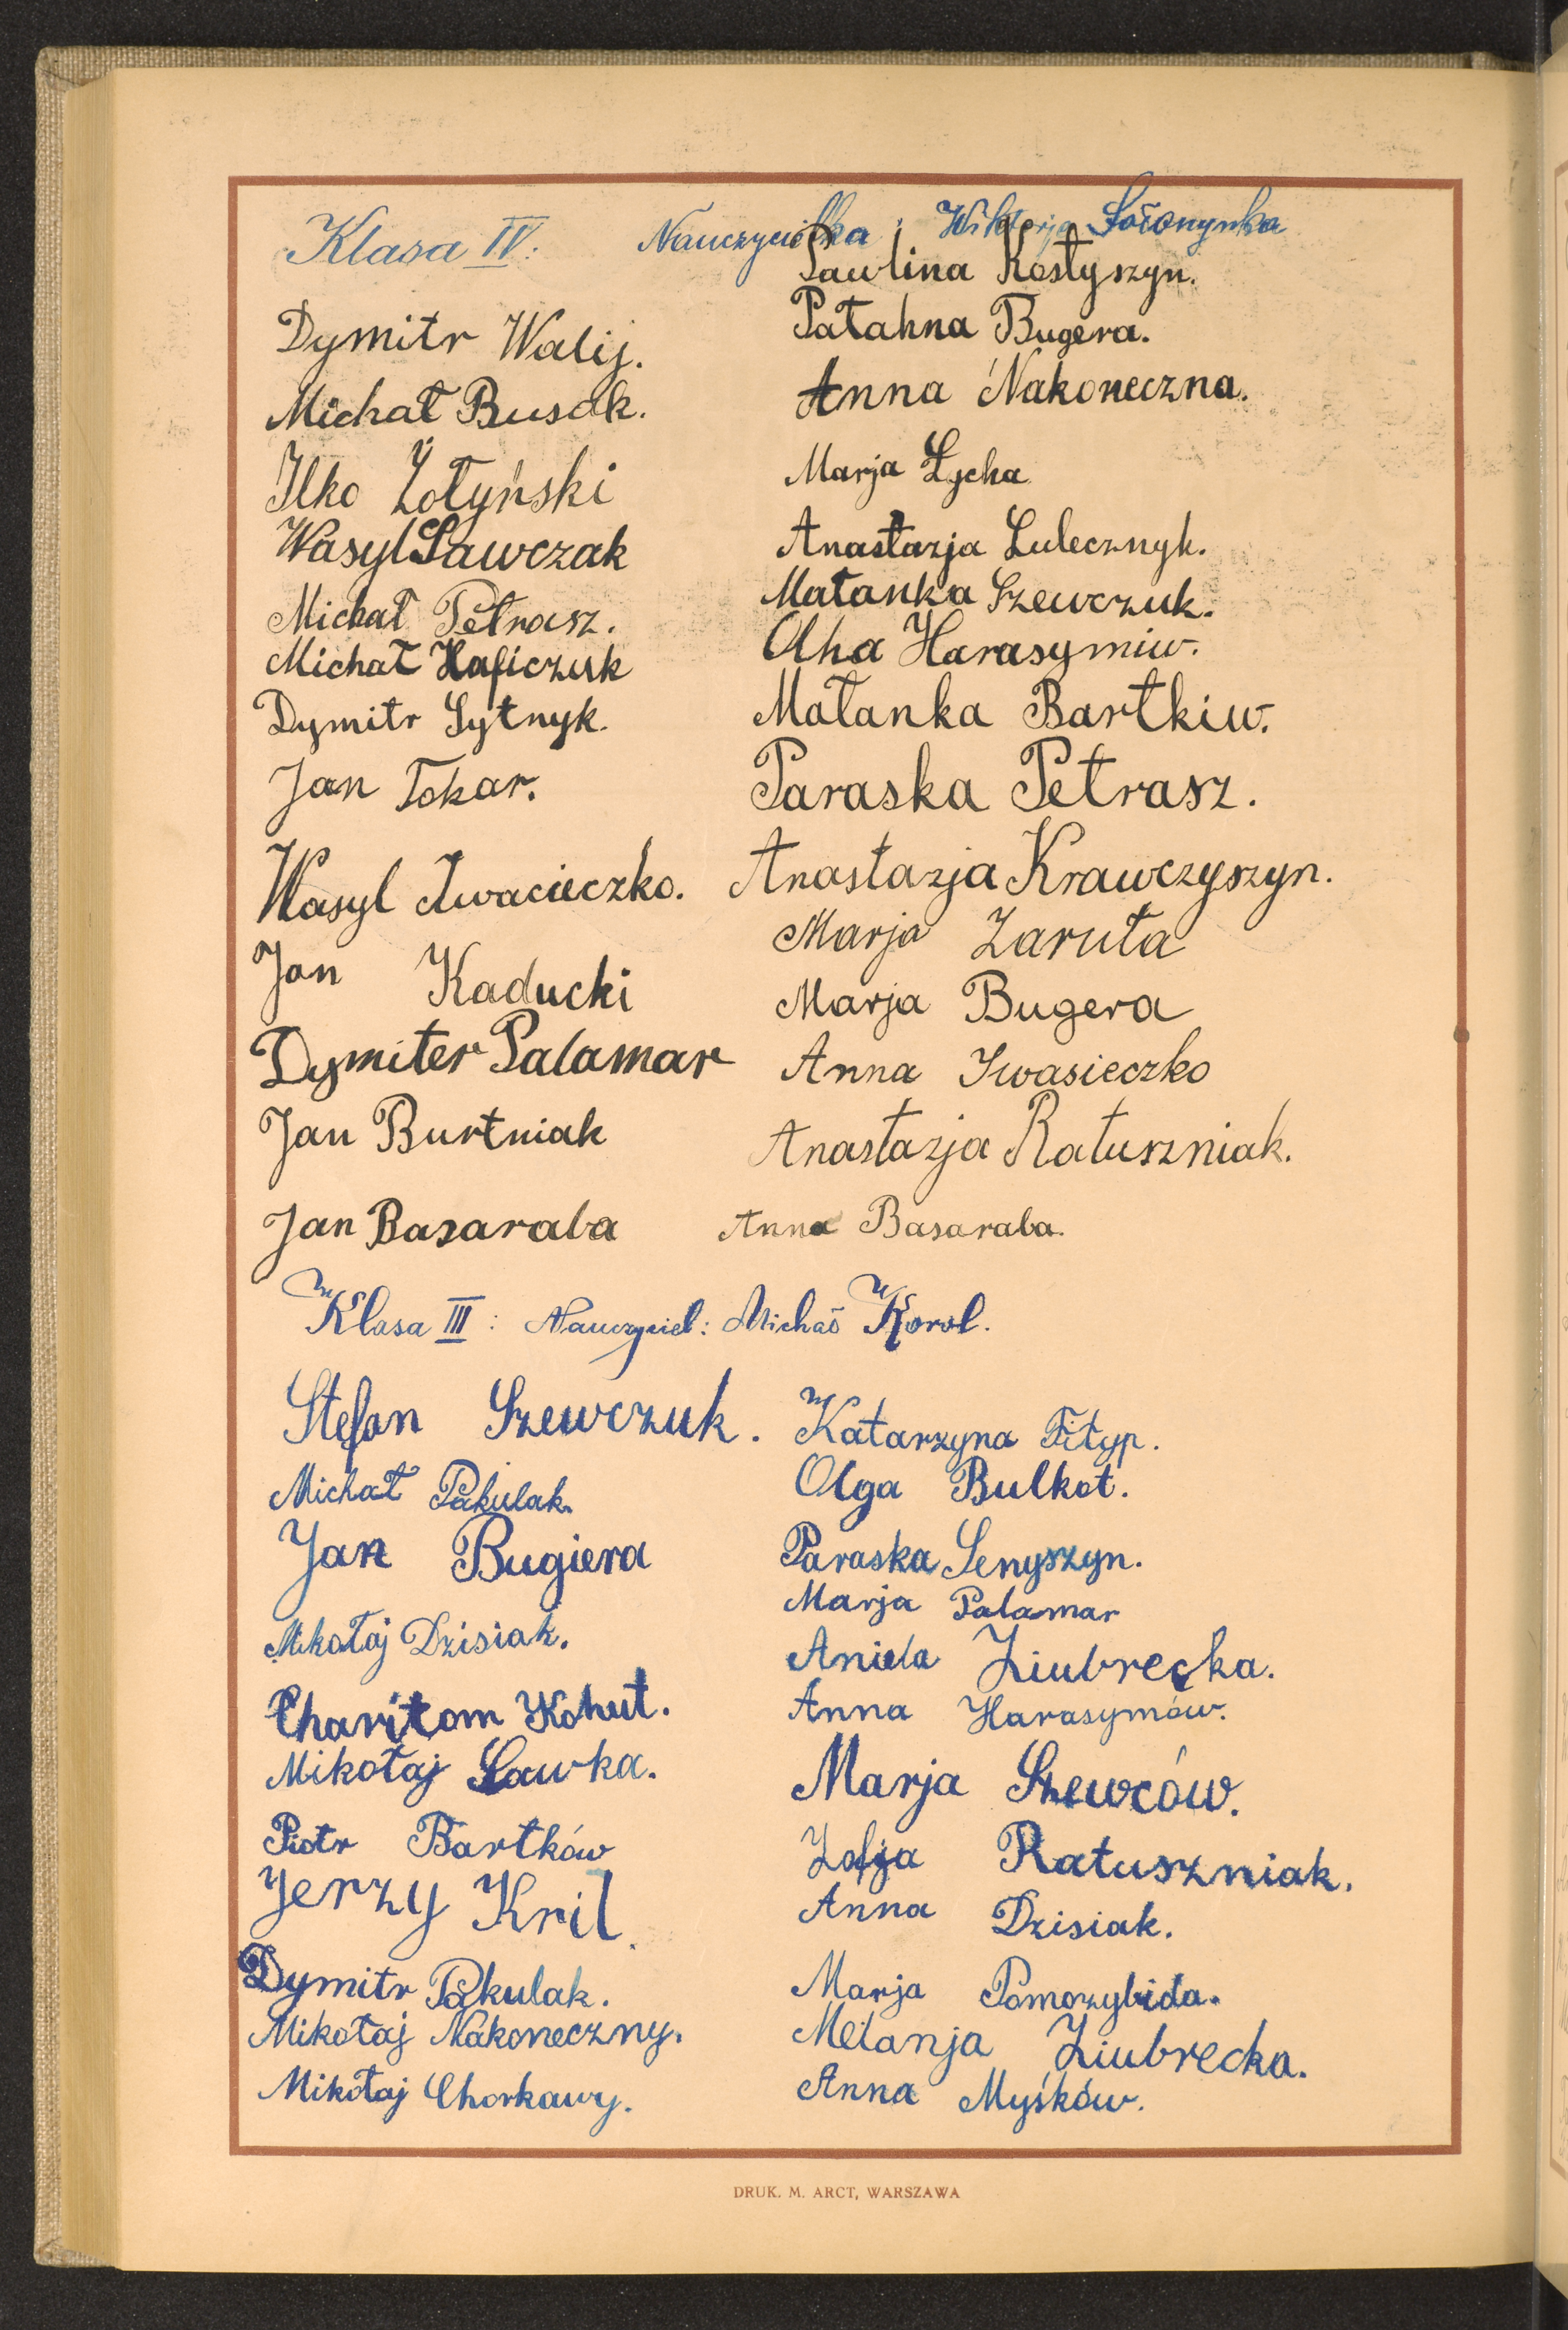 Klasa IV. Nauczycielka: Wiktorja
Dymitr Walij.
Michał Busak.
Ilko Żołyński
Wasyl Ławczak
Michał Petrasz.
Michał Haficzuk
Dymitr Sytnyk.
Jan Tokar.
Wasyl Iwacieczko.
Jan Kaducki
Dymiter Palamar
Jan Burtniak
Jan Basaraba
Paulina Kostyszyn.
Pałahna Bugera.
Anna Nakoneczna.
Marja Łycha
Anastazja Lulecznyk.
Małanka Szewczuk.
Olha Harasymiw.
Małanka Bartkiw.
Paraska Petrasz.
Anastazja Krawczyszyn.
Marja Zaruta
Marja Bugera
Anna Iwasieczko
Anastazja Ratuszniak.
Anna Basaraba.
Klasa III: Nauczyciel: Michał Korol.
Stefan Szewczuk.
Michał Pakulak.
Jan Bugiera
Mikołaj Dzisiak.
Charitom Kohut.
Mikołaj Ławka.
Piotr Bartków
Jerzy Kril.
Dymitr Pakulak.
Mikołaj Nakoneczny.
Mikołaj Chorkawy.
Katarzyna Fityp.
Olga Bulkot.
Paraska Senyszyn.
Marja Palamar
Aniela Ziubrecka.
Anna Harasymów.
Marja Szewców.
Zofja Ratuszniak.
Anna Dzisiak.
Marja Pomozybida.
Melanja Ziubrecka.
Anna Myśków.
DRUK. M. ARCT, WARSZAWA